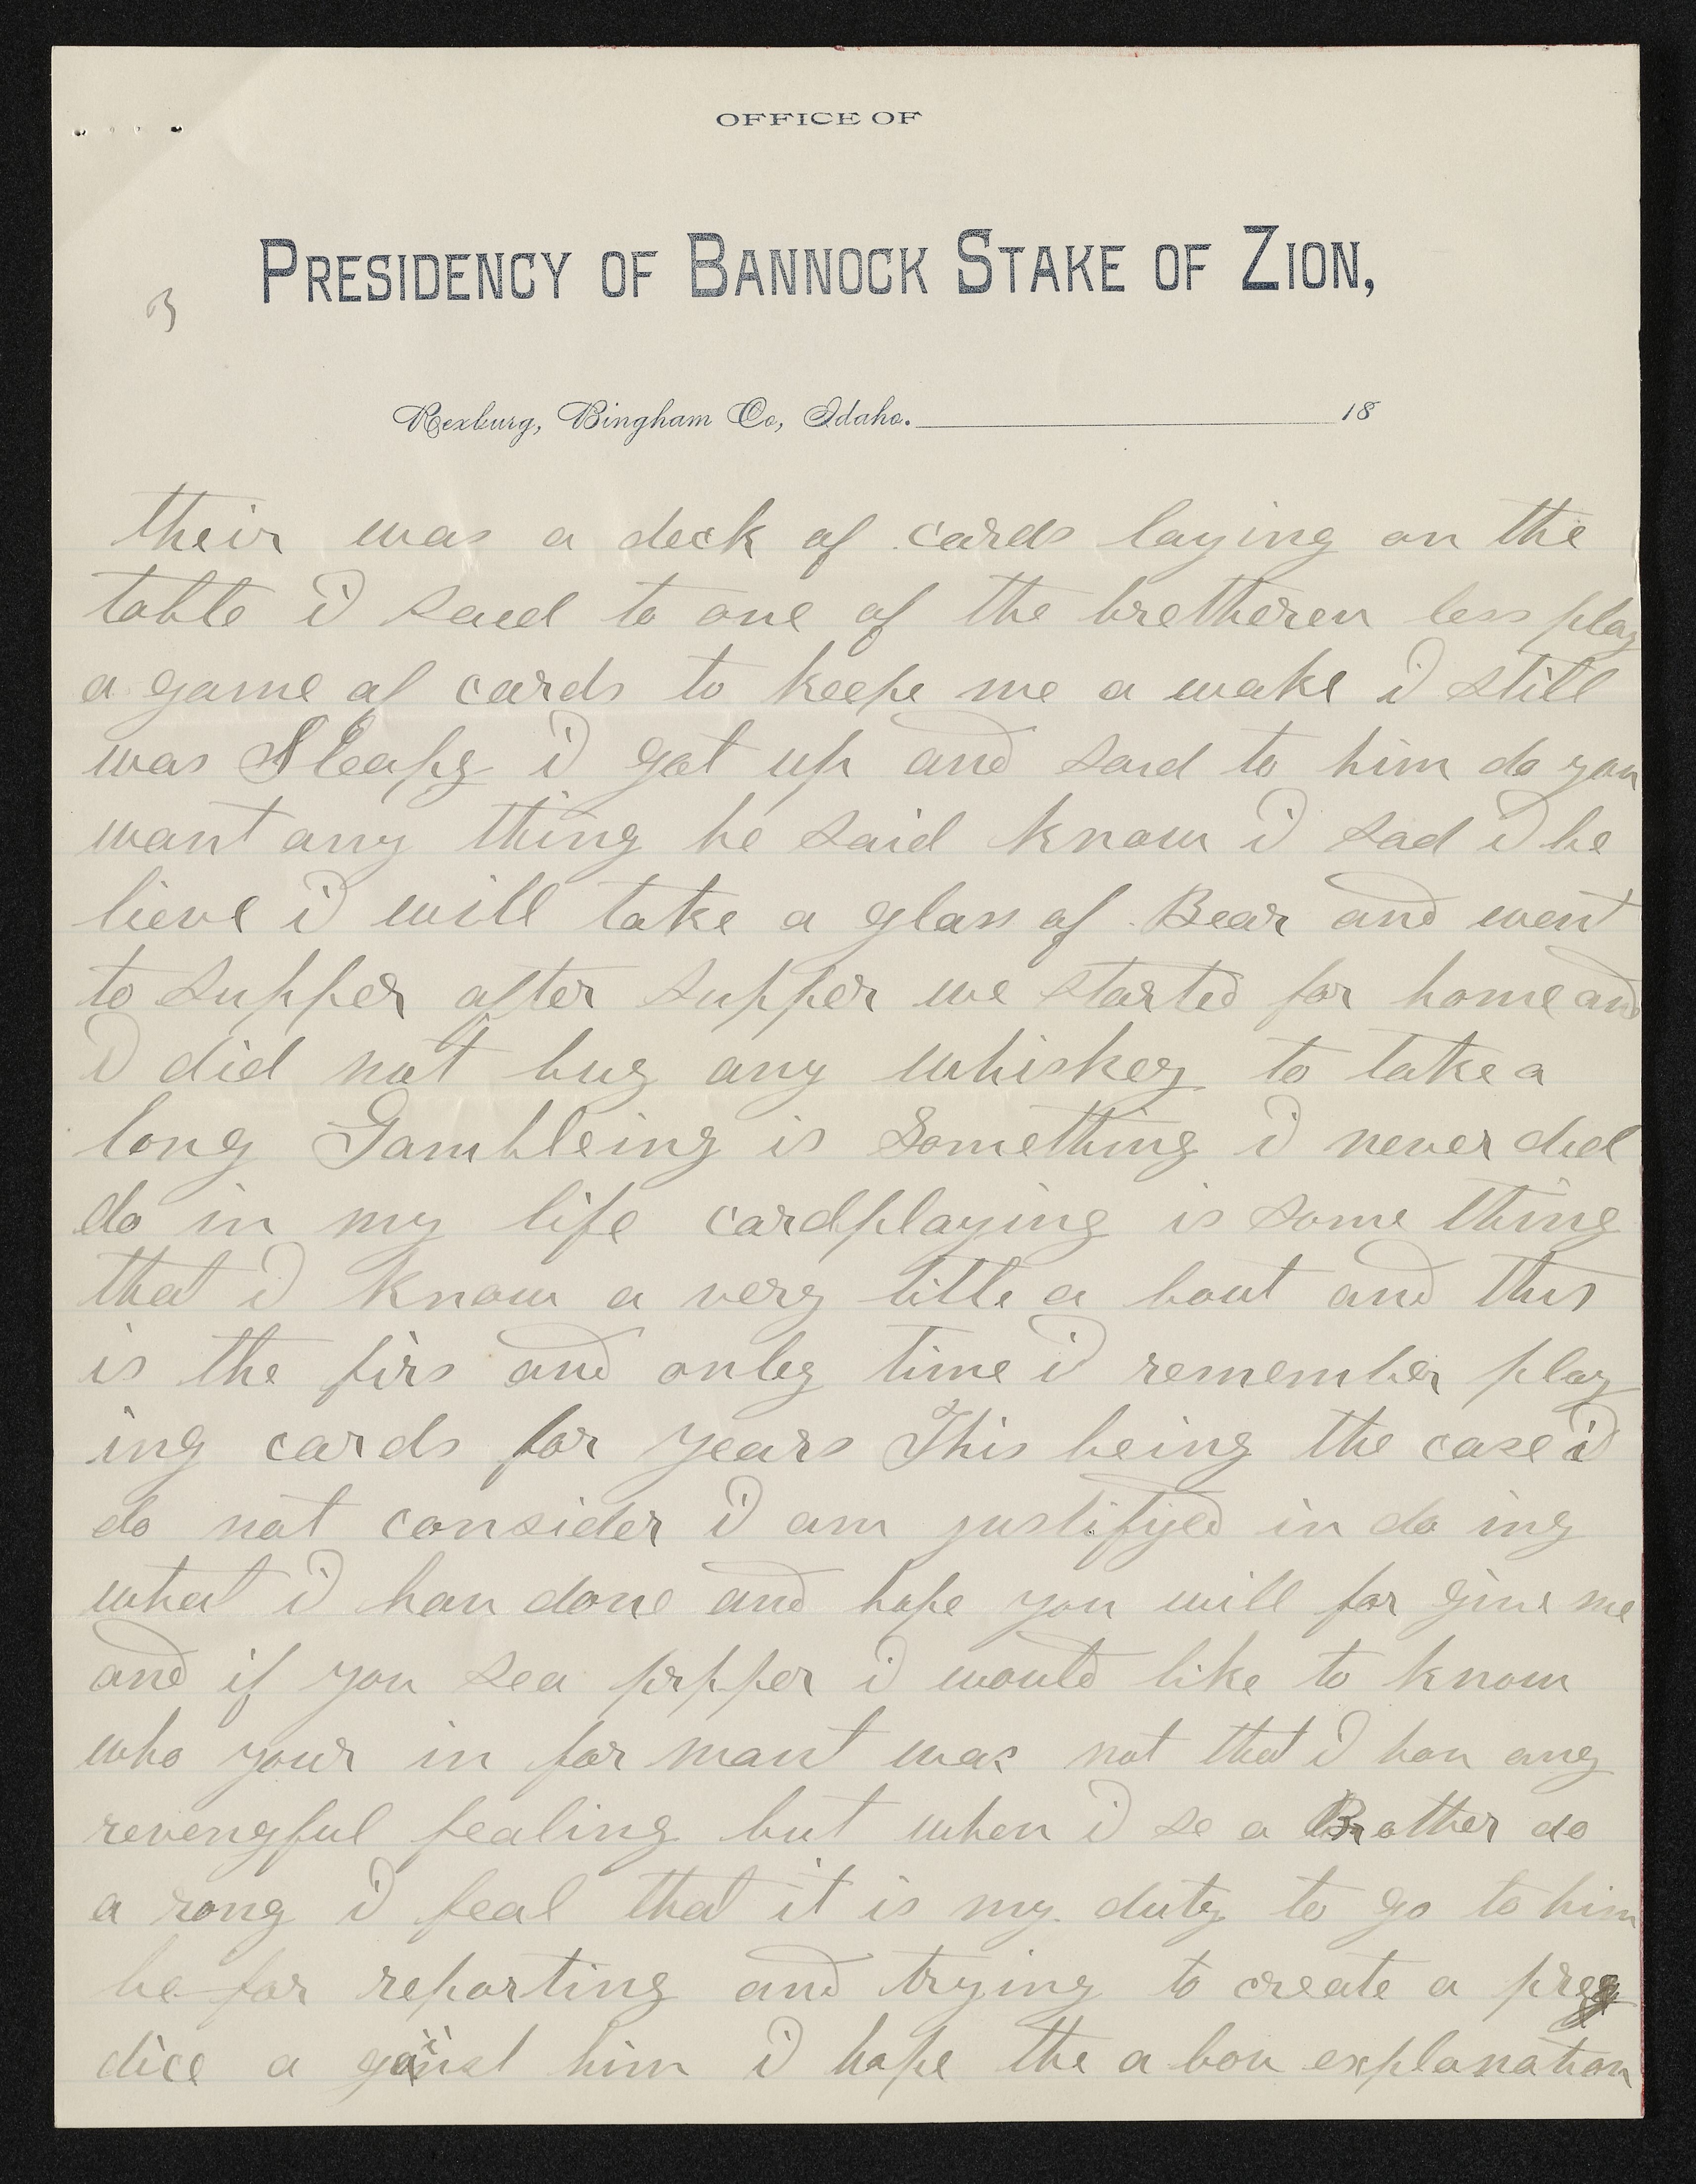 OFFICE OF
PRESIDENCY OF BANNOCK STAKE OF ZION,
3
Rexburg, Bingham Co, Idaho. 18
their was a deck of cards laying on the
table i saed to one of the bretheren less play
a game of cards to keepe me a wake i still
was Sleapy i got up and said to him do you
want any thing he said know i sad i be
lieve i will take a glass of Bear and went
to supper after supper we started for home and
i did not buy any whiskey to take a
long Gambleing is Something i never did
do in my life cardplaying is some thing
that i know a very little a bout and this
is the firs and onley time i remember play
ing cards for years This being the case i
do not consider i am justifyed in do ing
what i hav done and hope you will for give me
and if you sea prpper i would like to know
who your in for mant was not that i hav any
revengful fealing but when i se a Brother do
a rong i feal that it is my duty to go to him
be for reporting and trying to create a
dice a gainst him i hope the a bov explanation